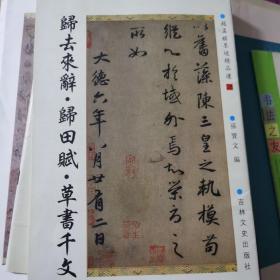 ●趙孟頫墨迹精品選
●孫寶文 編
●吉林文史出版社
以奮藻陳三皇之軌模苟
縱心於域外焉知榮辱之
所如
大德六年八月廿有二日
歸去來辭·歸田賦·草書千文
书法之友